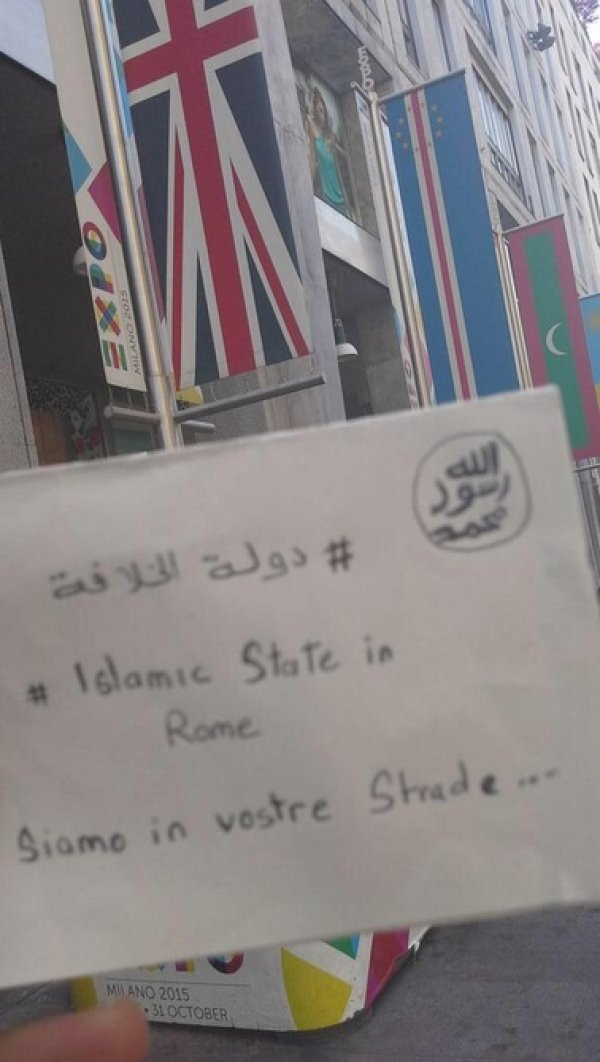 EXPO
MILANO 2015
EXPO
الله
رسول
محمد
# دولة الخلافة
# Islamic State in
Rome
Siamo in vostre Strade ...
MILANO 2015
• 31 OCTOBER